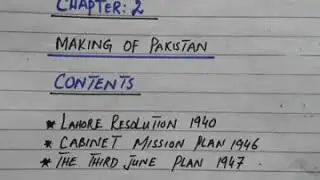 CHAPTER: 2
MAKING OF PAKISTAN
CONTENTS
* LAHORE RESOLUTION 1940
* CABINET MISSION PLAN 1946
* THE THIRD JUNE PLAN 1947.